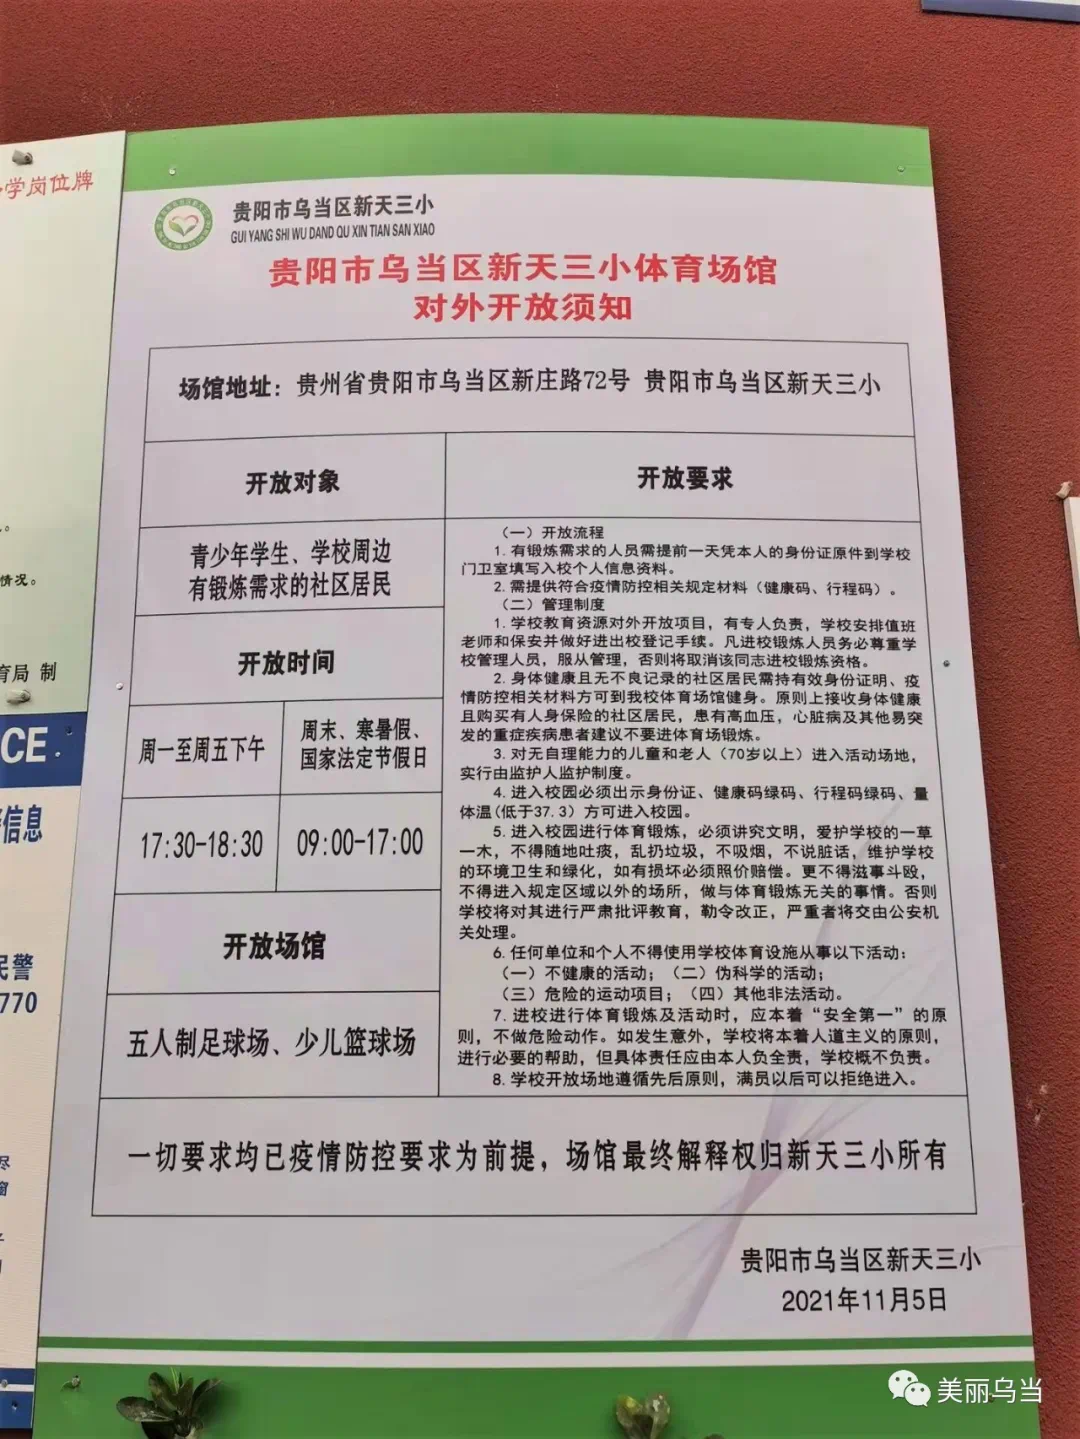 学岗位牌
情况。
育局 制
CE
信息
民警
770
贵阳市乌当区新天三小
GUI YANG SHI WU DAND QU XIN TIAN SAN XIAO
贵阳市乌当区新天三小体育场馆
对外开放须知
场馆地址：贵州省贵阳市乌当区新庄路72号 贵阳市乌当区新天三小
开放对象
青少年学生、学校周边
有锻炼需求的社区居民
开放时间
周一至周五下午
周末、寒暑假、
国家法定节假日
17:30-18:30
09:00-17:00
开放场馆
五人制足球场、少儿篮球场
开放要求
（一）开放流程
1. 有锻炼需求的人员需提前一天凭本人的身份证原件到学校
门卫室填写入校个人信息资料。
2. 需提供符合疫情防控相关规定材料（健康码、行程码）。
（二）管理制度
1. 学校教育资源对外开放项目，有专人负责，学校安排值班
老师和保安并做好进出校登记手续。凡进校锻炼人员务必尊重学
校管理人员，服从管理，否则将取消该同志进校锻炼资格。
2. 身体健康且无不良记录的社区居民需持有效身份证明、疫
情防控相关材料方可到我校体育场馆健身。原则上接收身体健康
且购买有人身保险的社区居民，患有高血压，心脏病及其他易突
发的重症疾病患者建议不要进体育场锻炼。
3. 对无自理能力的儿童和老人（70岁以上）进入活动场地，
实行由监护人监护制度。
4. 进入校园必须出示身份证、健康码绿码、行程码绿码、量
体温(低于37.3）方可进入校园。
5. 进入校园进行体育锻炼，必须讲究文明，爱护学校的一草
一木，不得随地吐痰，乱扔垃圾，不吸烟，不说脏话，维护学校
的环境卫生和绿化，如有损坏必须照价赔偿。更不得滋事斗殴，
不得进入规定区域以外的场所，做与体育锻炼无关的事情。否则
学校将对其进行严肃批评教育，勒令改正，严重者将交由公安机
关处理。
6. 任何单位和个人不得使用学校体育设施从事以下活动：
（一）不健康的活动；（二）伪科学的活动；
（三）危险的运动项目；（四）其他非法活动。
7. 进校进行体育锻炼及活动时，应本着“安全第一”的原
则，不做危险动作。如发生意外，学校将本着人道主义的原则，
进行必要的帮助，但具体责任应由本人负全责，学校概不负责。
8. 学校开放场地遵循先后原则，满员以后可以拒绝进入。
一切要求均已疫情防控要求为前提，场馆最终解释权归新天三小所有
贵阳市乌当区新天三小
2021年11月5日
美丽乌当